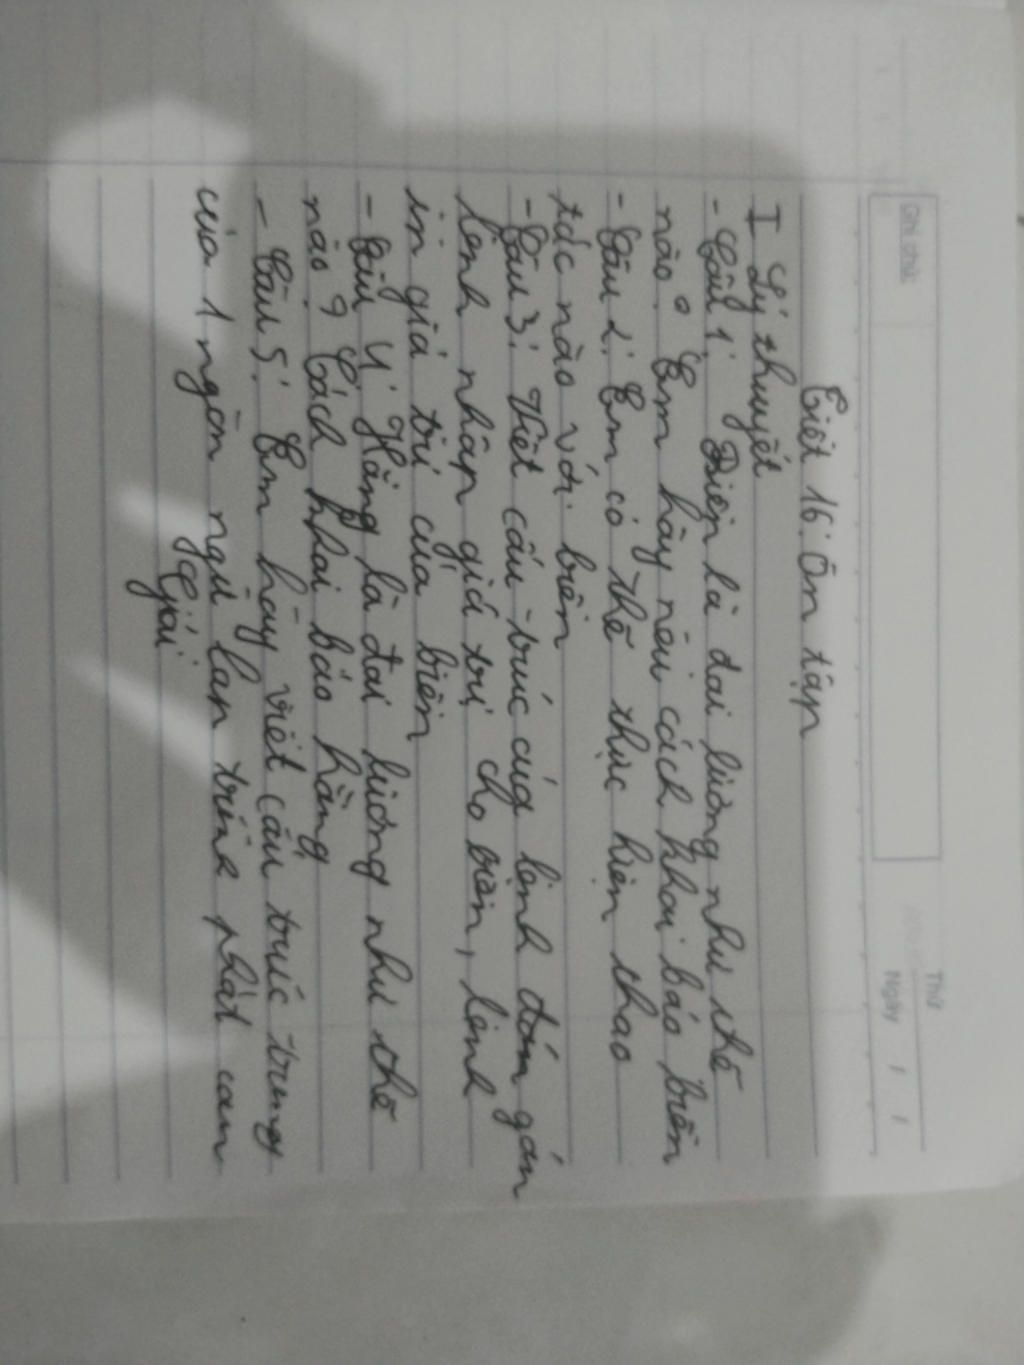 Ghi chú:
Thứ
Ngày / /
Tiết 16: Ôn tập
I Lý thuyết
- Câu 1: Biến là đai lượng như thế
nào? Em hãy nêu cách khai báo biến
- Câu 2: Em có thể thực hiện thao
tác nào với biến
- Câu 3: Viết cấu trúc của lệnh gán
lệnh nhập giá trị cho biến, lệnh
in giá trị của biến
- Câu 4: Hằng là đai lượng như thế
nào? Cách khai báo hằng
- Câu 5: Em hãy viết cấu trúc trung
của 1 ngôn ngữ lan trình phát cam
Giải